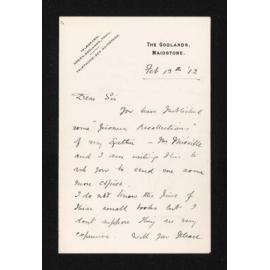 THE GODLANDS,
MAIDSTONE.
Feb 13th '12
Dear Sir
You have published
some "Prison Recollections"
of my Father - Mr
and I am writing this to
ask you to send me some
more copies.
I do not know the price of
these small books but I
don't suppose they are very
expensive. Will you please